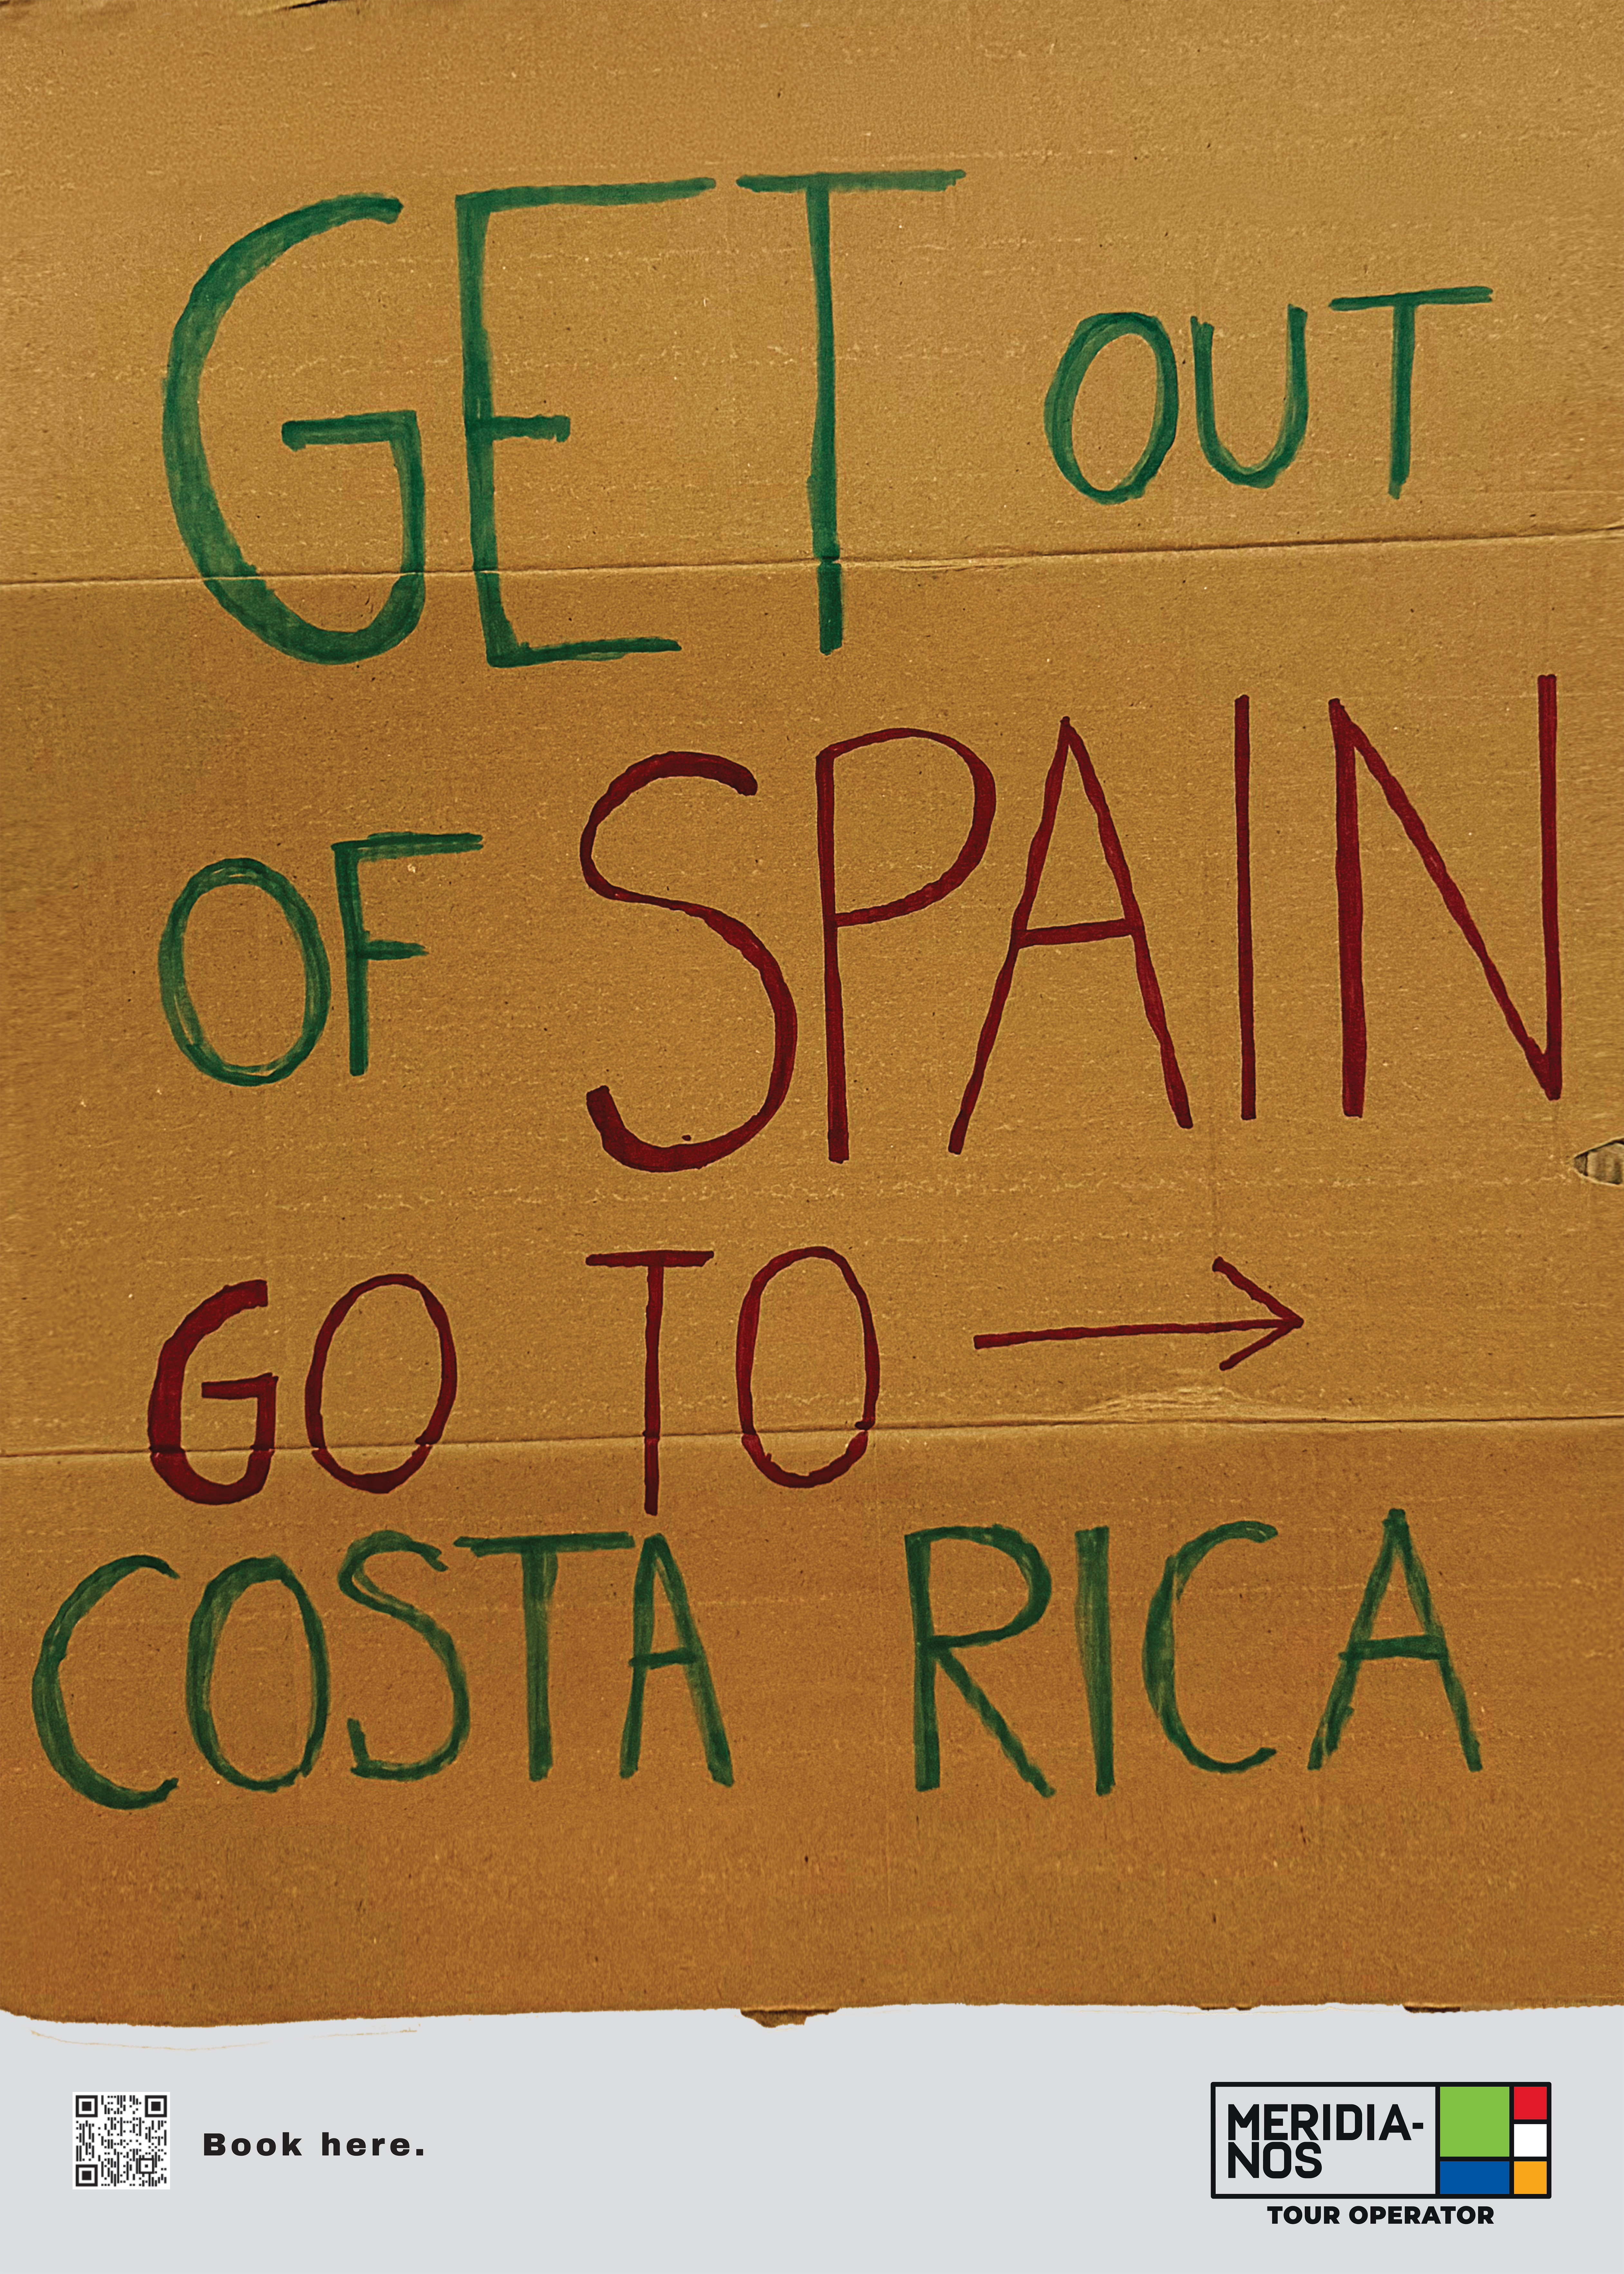 GET OUT
OF SPAIN
GO TO →
COSTA RICA
Book here.
MERIDIA-
NOS
TOUR OPERATOR